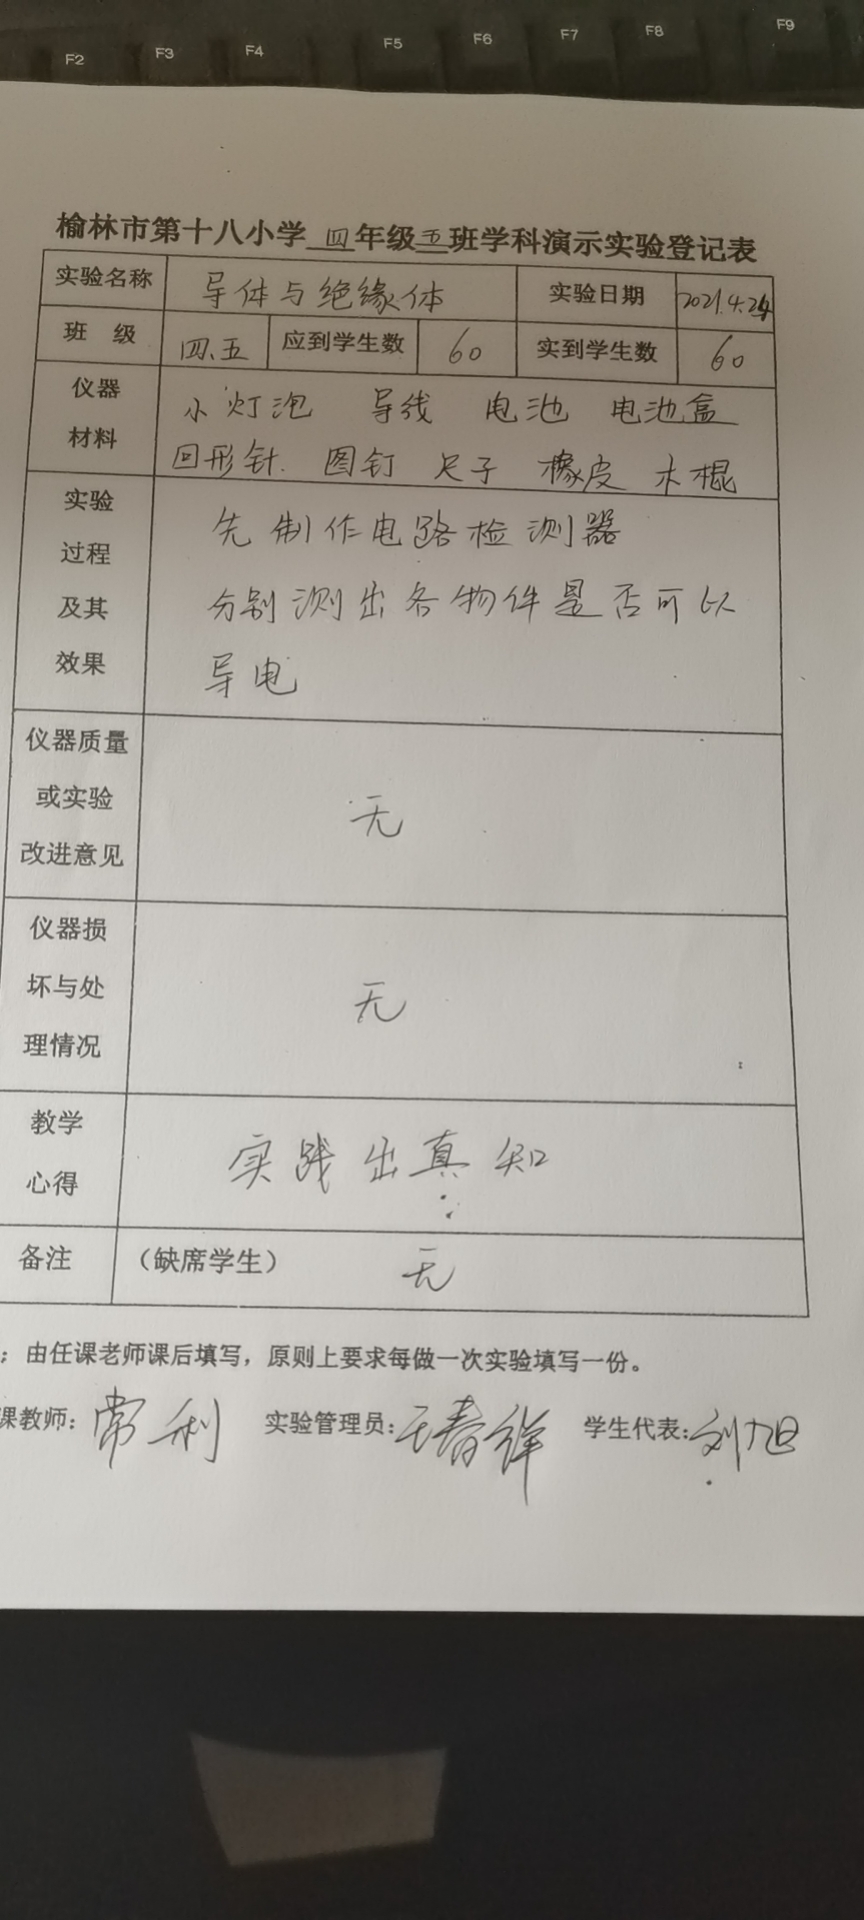 F2 F3 F4 F5 F6 F7 F8 F9
榆林市第十八小学四年级五班学科演示实验登记表
实验名称 导体与绝缘体 实验日期 2021.4.24
班 级 四.五 应到学生数 60 实到学生数 60
仪器
材料
小灯泡 导线 电池 电池盒
回形针. 图钉 尺子 橡皮 木棍
实验
过程
及其
效果
先制作电路检测器
分别测出各物件是否可以
导电
仪器质量
或实验
改进意见
无
仪器损
坏与处
理情况
无
教学
心得
实践出真知
备注 （缺席学生） 无
：由任课老师课后填写，原则上要求每做一次实验填写一份。
课教师：常利 实验管理员：王春祥 学生代表：刘旭